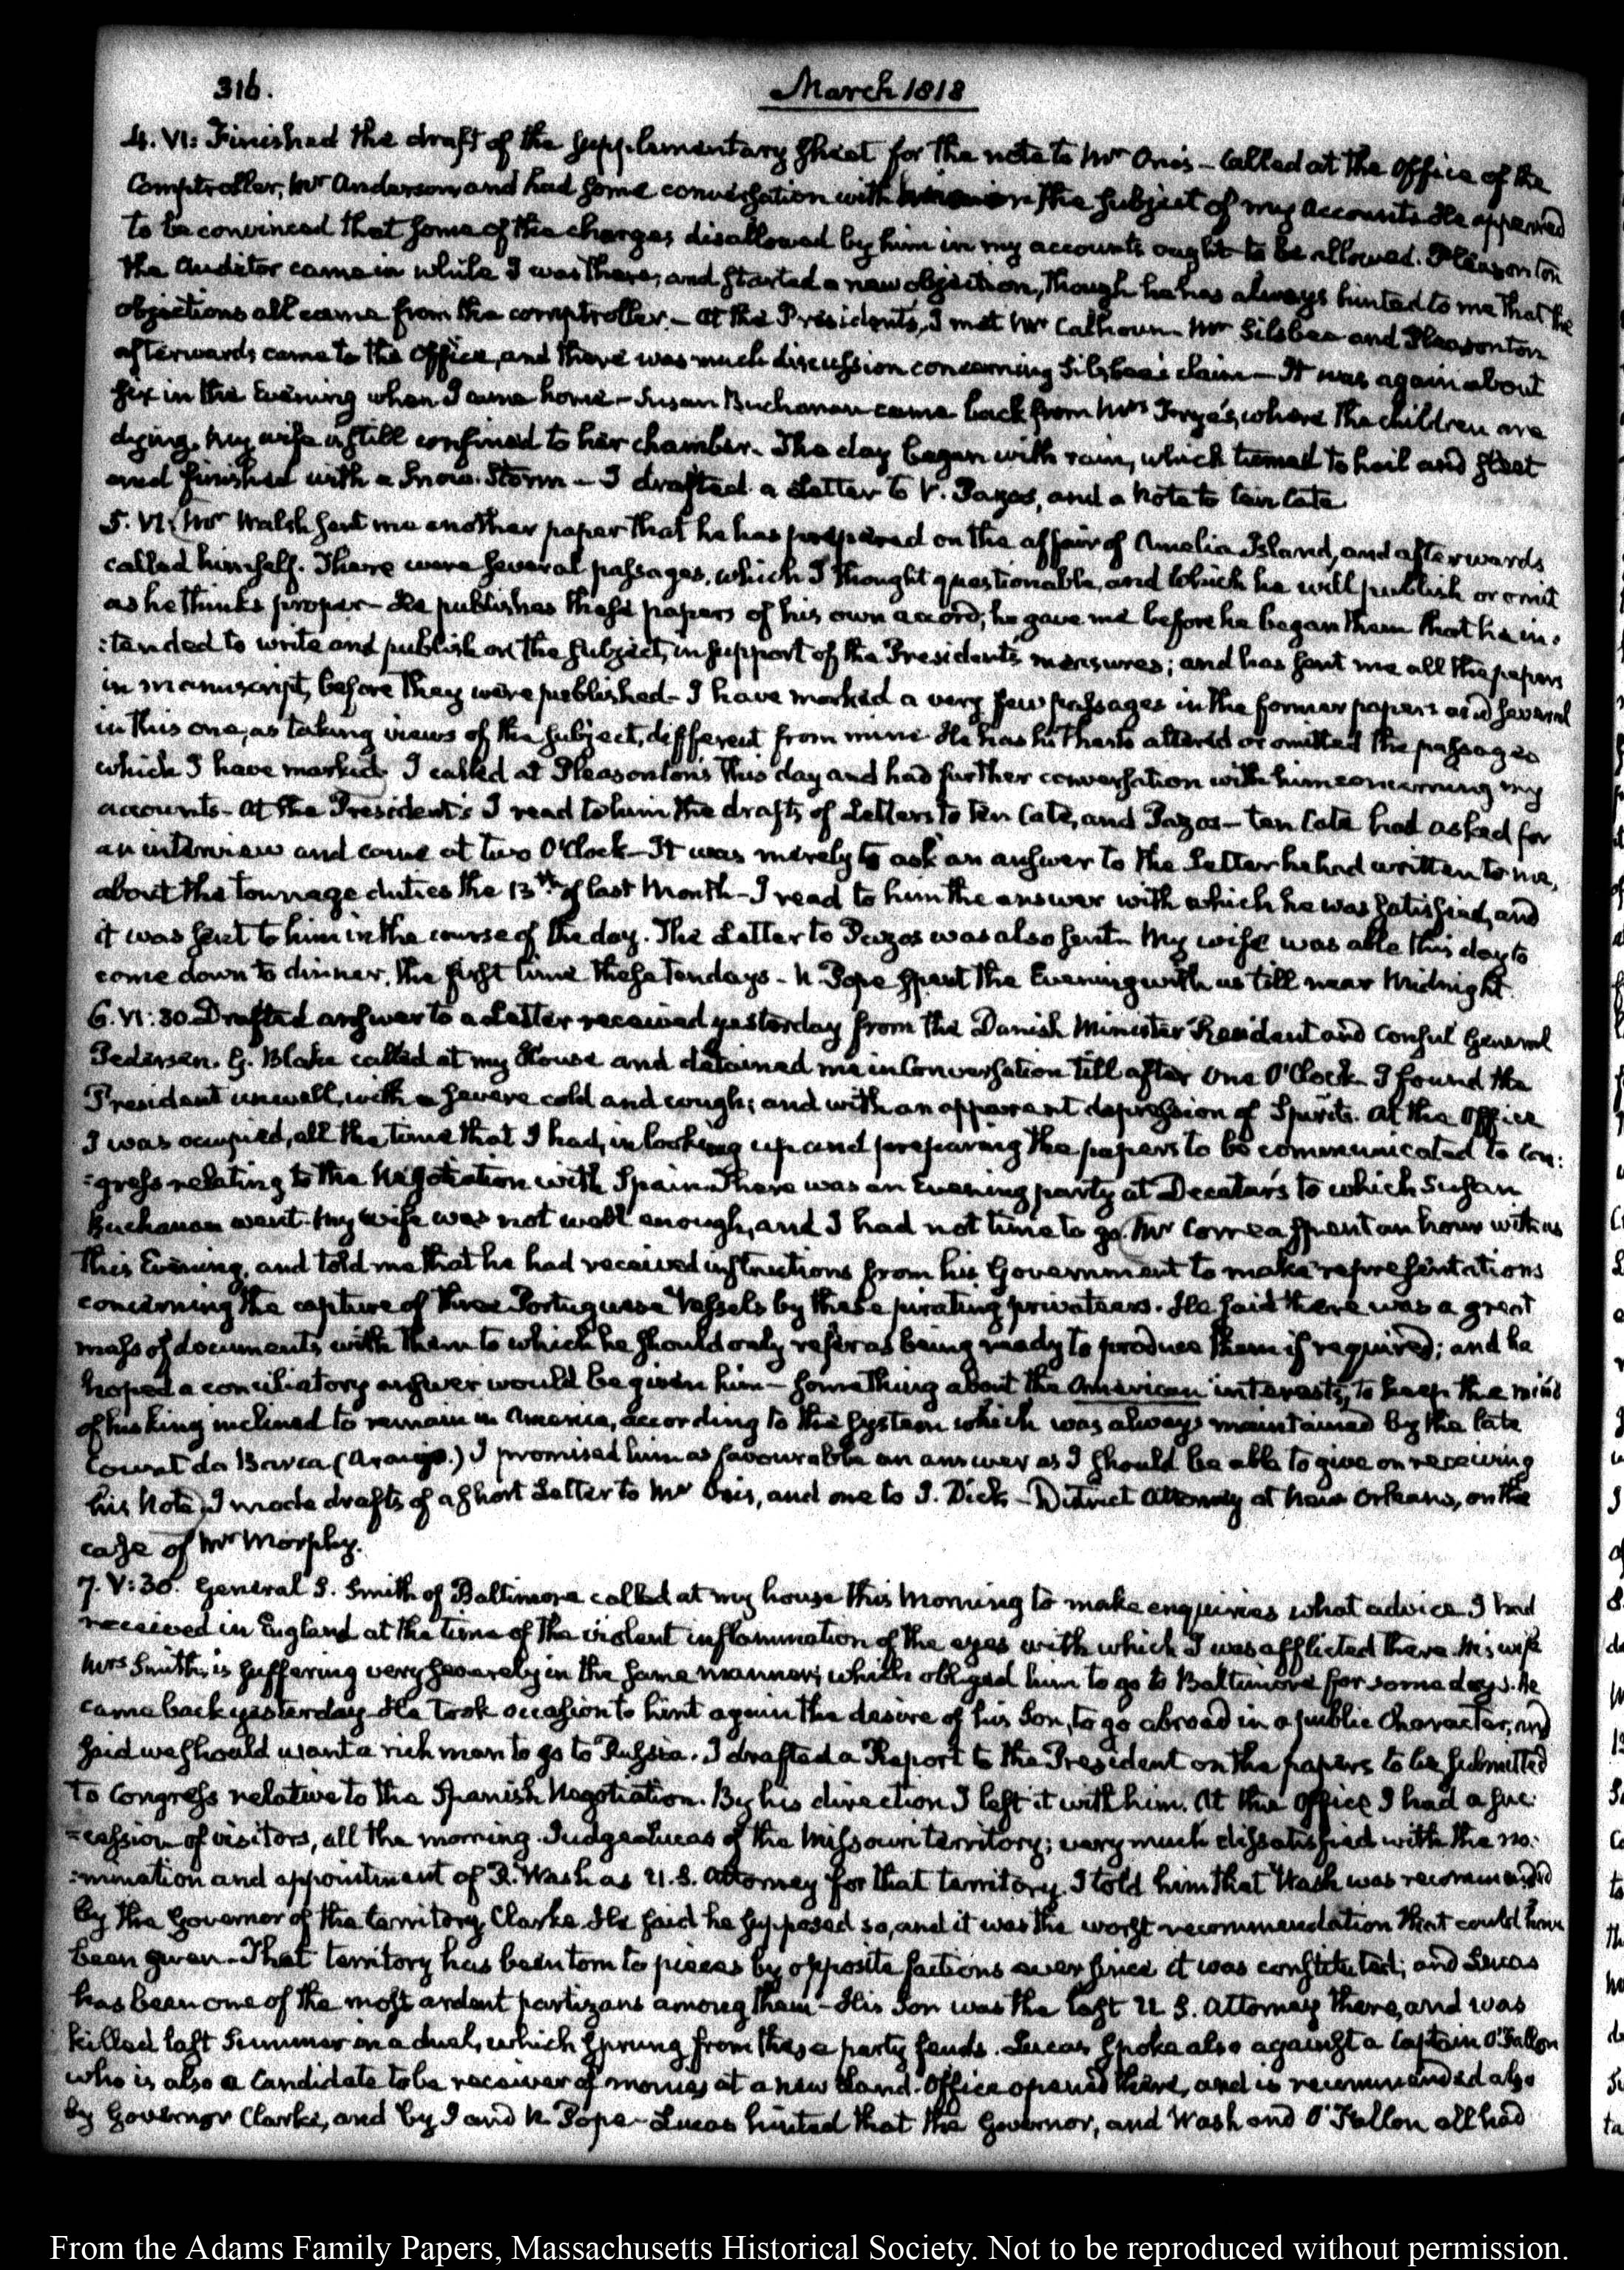 316.
March 1818
4. VI: Finished the draft of the supplementary sheet for the note to Mr Onis — Called at the Office of the
Comptroller, Mr Anderson, and had some conversation with him on the subject of my Accounts. He appeared
to be convinced that some of the charges disallowed by him in my accounts ought to be allowed. Pleasonton
the Auditor came in while I was there, and started a new objection, though he has always hinted to me that the
objections all came from the comptroller. — At the President's, I met Mr Calhoun. Mr Silsbee and Pleasonton
afterwards came to the Office, and there was much discussion concerning Silsbee's claim — It was again about
six in the Evening when I came home — Susan Buchanan came back from Mrs Frye's, where the children are
dying. My wife is still confined to her chamber. The day began with rain, which turned to hail and sleet
and finished with a Snow-Storm — I drafted a Letter to V. Pazos, and a Note to ten Cate
5. VI: Mr Walsh sent me another paper that he has prepared on the affair of Amelia Island, and afterwards
called himself. There were several passages, which I thought questionable, and which he will publish or omit
as he thinks proper — He publishes these papers of his own accord; he gave me before he began them that he in-
:tended to write and publish on the subject, in support of the President's measures; and has sent me all the papers
in manuscript, before they were published — I have marked a very few passages in the former papers and several
in this one, as taking views of the subject, different from mine. He has hitherto altered or omitted the passages
which I have marked. I called at Pleasonton's this day and had further conversation with him concerning my
accounts — At the President's I read to him the drafts of Letters to ten Cate, and Pazos — ten Cate had asked for
an interview and came at two O'Clock — It was merely to ask an answer to the Letter he had written to me,
about the tonnage duties the 13th of last Month — I read to him the answer with which he was satisfied, and
it was sent to him in the course of the day. The Letter to Pazos was also sent. My wife was able this day to
come down to dinner, the first time these ten days — N. Pope spent the Evening with us till near Midnight.
6. VI: 30. Drafted answer to a Letter received yesterday from the Danish Minister Resident and Consul General
Pedersen. G. Blake called at my House and detained me in Conversation till after One O'Clock. I found the
President unwell, with a severe cold and cough; and with an apparent depression of Spirits. At the Office
I was occupied, all the time that I had, in looking up and preparing the papers to be communicated to Con:
:gress relating to the Negotiation with Spain. There was an Evening party at Decatur's to which Susan
Buchanan went. My wife was not well enough, and I had not time to go. Mr Correa spent an hour with us
this Evening, and told me that he had received instructions from his Government to make representations
concerning the capture of three Portuguese Vessels by these pirating privateers. He said there was a great
mass of documents with them to which he should only refer as being ready to produce them if required; and he
hoped a conciliatory answer would be given him — Something about the American interests, to keep the mind
of his king inclined to remain in America, according to the system which was always maintained by the late
Count da Barca (Araujo.) I promised him as favourable an answer as I should be able to give on receiving
his Note. I made drafts of a short Letter to Mr Onis, and one to J. Dick — District Attorney at New Orleans, on the
case of Mr Morphy.
7. V: 30. General S. Smith of Baltimore called at my house this Morning to make enquiries what advice I had
received in England at the time of the violent inflammation of the eyes with which I was afflicted there. His wife
Mrs Smith, is suffering very severely in the same manner; which obliged him to go to Baltimore for some days. He
came back yesterday. He took occasion to hint again the desire of his Son, to go abroad in a public Character, and
said we should want a rich man to go to Russia. I drafted a Report to the President on the papers to be submitted
to Congress relative to the Spanish Negotiation. By his direction I left it with him. At the Office I had a suc:
:cession of visitors, all the morning. Judge Lucas of the Missouri territory; very much dissatisfied with the no:
:mination and appointment of R. Wash as U.S. Attorney for that territory. I told him that Wash was recommended
by the Governor of the territory Clarke. He said he supposed so, and it was the worst recommendation that could have
been given — That territory has been torn to pieces by opposite factions ever since it was constituted; and Lucas
has been one of the most ardent partizans among them — His Son was the last U S. Attorney there, and was
killed last Summer in a duel, which sprung from these party feuds. Lucas spoke also against a Captain O'Fallon
who is also a Candidate to be receiver of monies at a new Land-Office opened there, and is recommended also
by Governor Clarke, and by J and N. Pope — Lucas hinted that the Governor, and Wash and O'Fallon all had
From the Adams Family Papers, Massachusetts Historical Society. Not to be reproduced without permission.